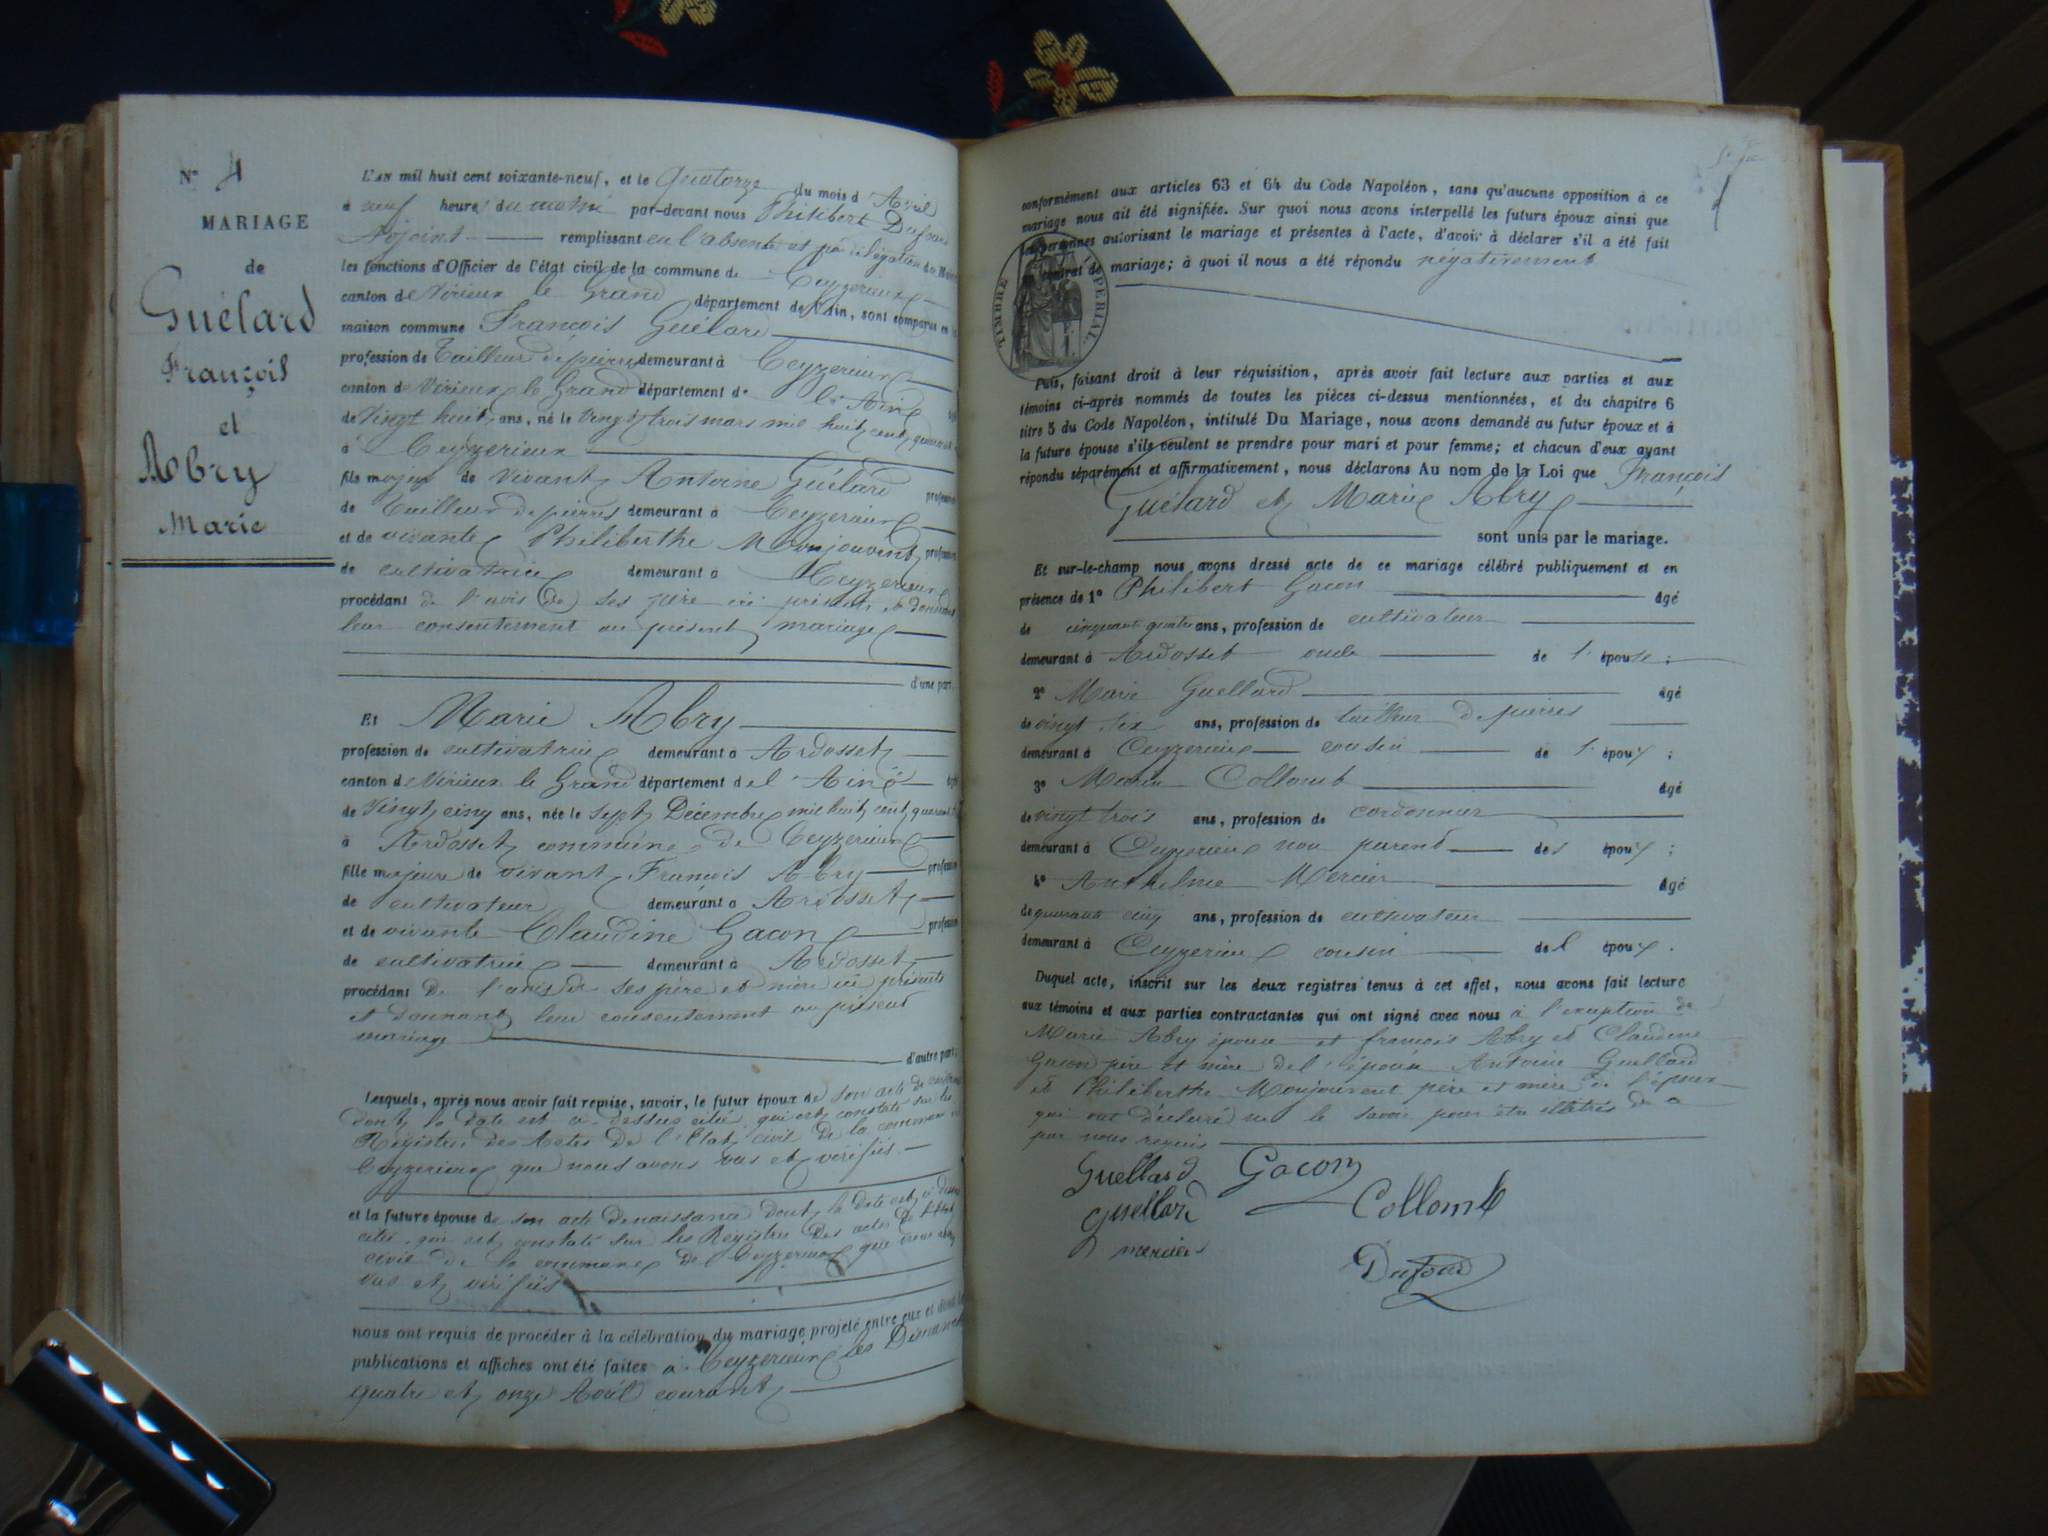 N° 4
MARIAGE
de
Guélard
François
et
Abry
Marie
L'AN mil huit cent soixante-neuf, et le Quatorze du mois d'Avril
à neuf heures du matin par-devant nous Philibert Dufour
Adjoint remplissant en l'absence et par délégation du Maire
les fonctions d'Officier de l'état civil de la commune de Ceyzerieux
canton de Virieux le Grand département de l'Ain, sont comparus en
maison commune François Guélard
profession de Tailleur de pierres demeurant à Ceyzerieux
canton de Virieux le Grand département de l'Ain
de Vingt huit ans, né le vingt trois mars mil huit cent
à Ceyzerieux
fils majeur de vivant Antoine Guélard profession
de Tailleur de pierres demeurant à Ceyzerieux
et de vivante Philiberthe Monjouvent profession
de cultivatrice demeurant à Ceyzerieux
procédant de l'avis de ses père ici présents et donnant
leur consentement au présent mariage
d'une part,
Et Marie Abry
profession de cultivatrice demeurant à Ardosset
canton de Virieux le Grand département de l'Ain
de Vingt cinq ans, née le sept Décembre mil huit cent
à Ardosset commune de Ceyzerieux
fille majeure de vivant François Abry profession
de cultivateur demeurant à Ardosset
et de vivante Claudine Gacon profession
de cultivatrice demeurant à Ardosset
procédant de l'avis de ses père et mère ici présents
et donnant leur consentement au présent
mariage d'autre part,
Lesquels, après nous avoir fait remise, savoir, le futur époux de son acte de
dont la date est ci-dessus citée, qui est constaté sur les
Registres des Actes de l'Etat civil de la commune de
Ceyzerieux que nous avons vus et vérifiés.
et la future épouse de son acte de naissance dont la date est ci dessus
citée, qui est constaté sur les Registres des actes de l'Etat
civil de la commune de Ceyzerieux que nous avons
vus et vérifiés
nous ont requis de procéder à la célébration du mariage projeté entre eux et dont les
publications et affiches ont été faites à Ceyzerieux les Dimanches
quatre et onze Avril courant
conformément aux articles 63 et 64 du Code Napoléon, sans qu'aucune opposition à ce
mariage nous ait été signifiée. Sur quoi nous avons interpellé les futurs époux ainsi que
les personnes autorisant le mariage et présentes à l'acte, d'avoir à déclarer s'il a été fait
contrat de mariage; à quoi il nous a été répondu négativement
TIMBRE IMPERIAL
Puis, faisant droit à leur réquisition, après avoir fait lecture aux parties et aux
témoins ci-après nommés de toutes les pièces ci-dessus mentionnées, et du chapitre 6
titre 5 du Code Napoléon, intitulé Du Mariage, nous avons demandé au futur époux et à
la future épouse s'ils veulent se prendre pour mari et pour femme; et chacun d'eux ayant
répondu séparément et affirmativement, nous déclarons Au nom de la Loi que François
Guélard et Marie Abry
sont unis par le mariage.
Et sur-le-champ nous avons dressé acte de ce mariage célébré publiquement et en
présence de 1° Philibert Gacon âgé
de cinquante quatre ans, profession de cultivateur
demeurant à Ardosset oncle de l'épouse;
2° Marie Guellard âgé
de vingt six ans, profession de tailleur de pierres
demeurant à Ceyzerieux cousin de l'époux;
3° Collomb âgé
de vingt trois ans, profession de cordonnier
demeurant à Ceyzerieux non parent des époux;
4° Anthelme Mercier âgé
de quarante cinq ans, profession de cultivateur
demeurant à Ceyzerieux cousin de l époux.
Duquel acte, inscrit sur les deux registres tenus à cet effet, nous avons fait lecture
aux témoins et aux parties contractantes qui ont signé avec nous à l'exception de
Marie Abry épouse et françois Abry et Claudine
Gacon père et mère de l'épouse Antoine Guellard
et Philiberthe Monjouvent père et mère de l'époux
qui ont déclaré ne le savoir pour être illétrés de ce
par nous requis
Guellard Gacon
Guellard Collomb
mercier
Dufour